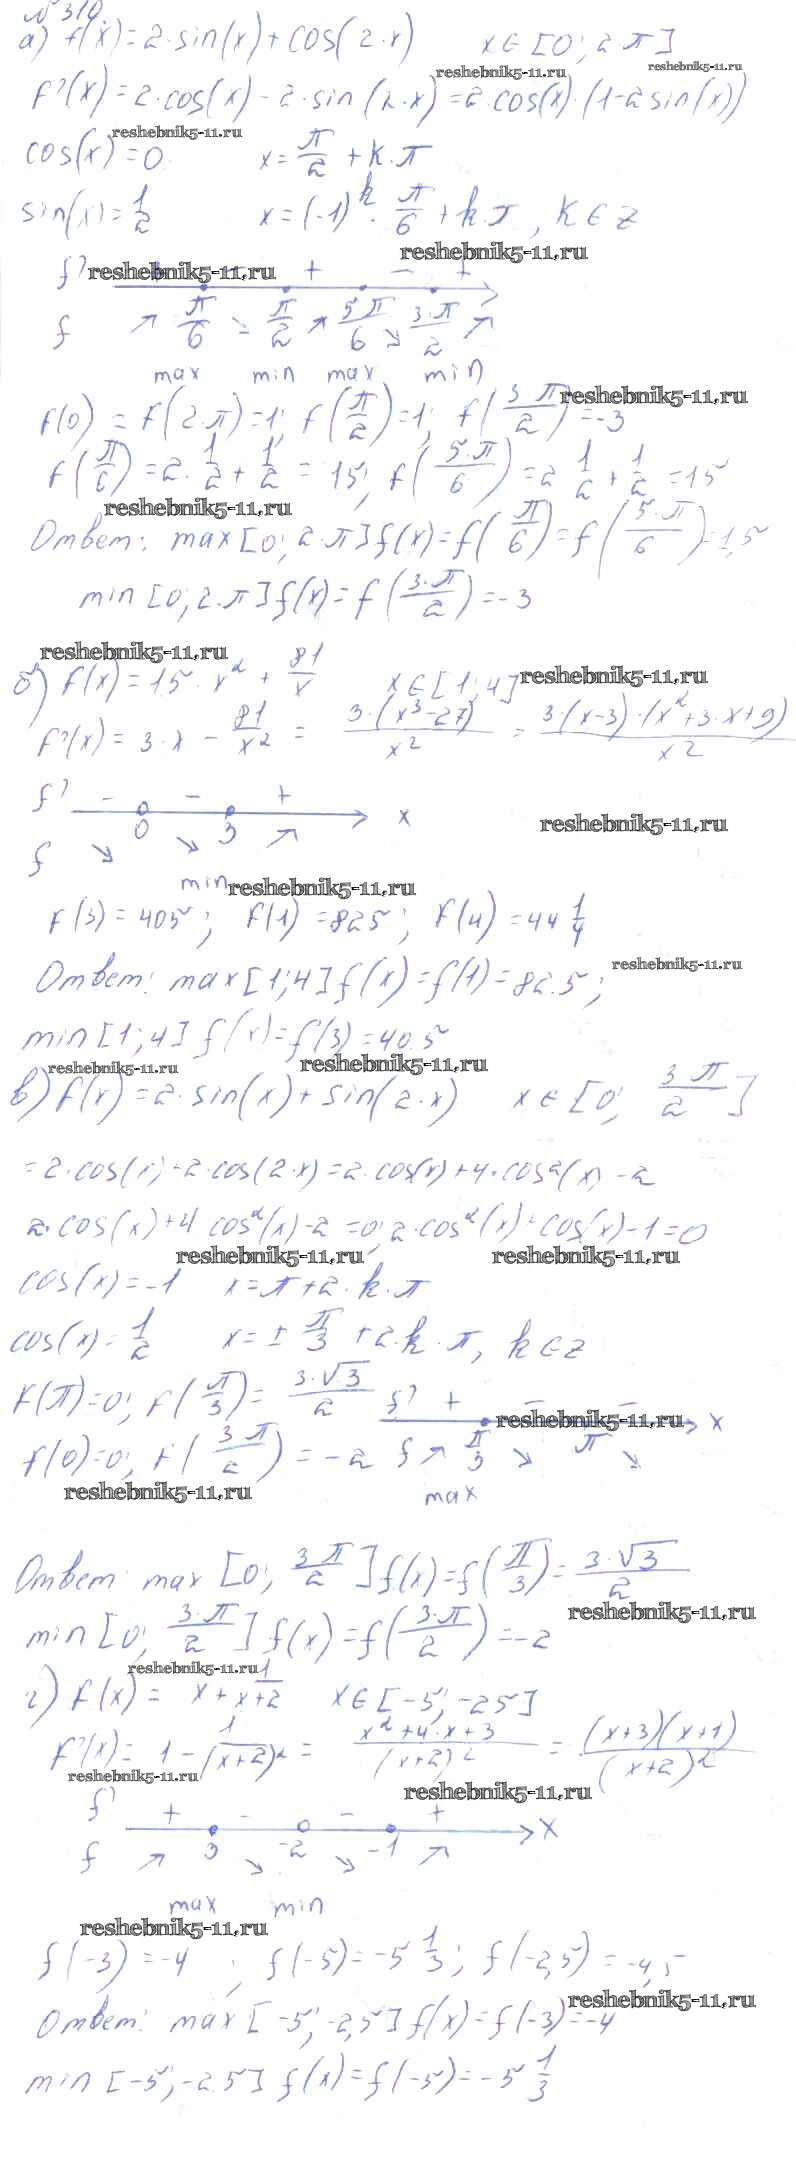 № 310.
а) f(x)=2·sin(x)+cos(2·x) x∈[0; 2π]
reshebnik5-11.ru reshebnik5-11.ru
f'(x)=2·cos(x)-2·sin(2·x)=2·cos(x)·(1-2sin(x))
reshebnik5-11.ru
cos(x)=0 x=π/2+k·π
sin(x)=1/2 x=(-1)^k·π/6+k·π, k∈z
reshebnik5-11.ru
f' reshebnik5-11.ru + - +
f ↗ π/6 ↘ π/2 ↗ 5π/6 ↘ 3·π/2 ↗
max min max min
reshebnik5-11.ru
f(0)=f(2·π)=1; f(π/2)=1; f(3·π/2)=-3
f(π/6)=2·1/2+1/2=15; f(5·π/6)=2 1/2+1/2=15
reshebnik5-11.ru
Ответ: max[0; 2·π]f(x)=f(π/6)=f(5·π/6)=1,5
min[0; 2·π]f(x)=f(3·π/2)=-3
reshebnik5-11.ru
б) f(x)=15·x²+81/x x∈[1;4] reshebnik5-11.ru
f'(x)=3·x-81/x²=3·(x³-27)/x²=3·(x-3)·(x²+3·x+9)/x²
f' - - +
0 3 x reshebnik5-11.ru
f ↘ ↘ ↗
min reshebnik5-11.ru
f(3)=405; f(1)=825; f(4)=44 1/4
Ответ: max[1;4]f(x)=f(1)=82.5; reshebnik5-11.ru
min[1;4] f(x)=f(3)=40.5
reshebnik5-11.ru reshebnik5-11.ru
в) f(x)=2·sin(x)+sin(2·x) x∈[0; 3·π/2]
=2·cos(x)+2·cos(2·x)=2·cos(x)+4·cos²(x)-2
2·cos(x)+4cos²(x)-2=0; 2·cos²(x)+cos(x)-1=0
reshebnik5-11.ru reshebnik5-11.ru
cos(x)=-1 x=π+2·k·π
cos(x)=1/2 x=±π/3+2·k·π, k∈z
f(π)=0; f(π/3)=3·√3/2 f' + - -
reshebnik5-11.ru x
f(0)=0; f(3·π/2)=-2 f ↗ π/3 ↘ π ↘
reshebnik5-11.ru max
Ответ: max[0; 3·π/2]f(x)=f(π/3)=3·√3/2
reshebnik5-11.ru
min[0; 3·π/2]f(x)=f(3·π/2)=-2
reshebnik5-11.ru
г) f(x)= x+1/x+2 x∈[-5; -25]
f'(x)=1-1/(x+2)²=x²+4·x+3/(x+2)²=(x+3)(x+1)/(x+2)²
reshebnik5-11.ru reshebnik5-11.ru
f' + - - +
3 -2 -1 x
f ↗ ↘ ↘ ↗
max min
reshebnik5-11.ru
f(-3)=-4; f(-5)=-5 1/3; f(-2,5)=-4,5
reshebnik5-11.ru
Ответ: max[-5; -2,5]f(x)=f(-3)=-4
min[-5; -2.5] f(x)=f(-5)=-5 1/3